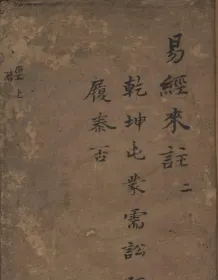 易經來註 二
乾坤屯蒙需訟
履泰否
上